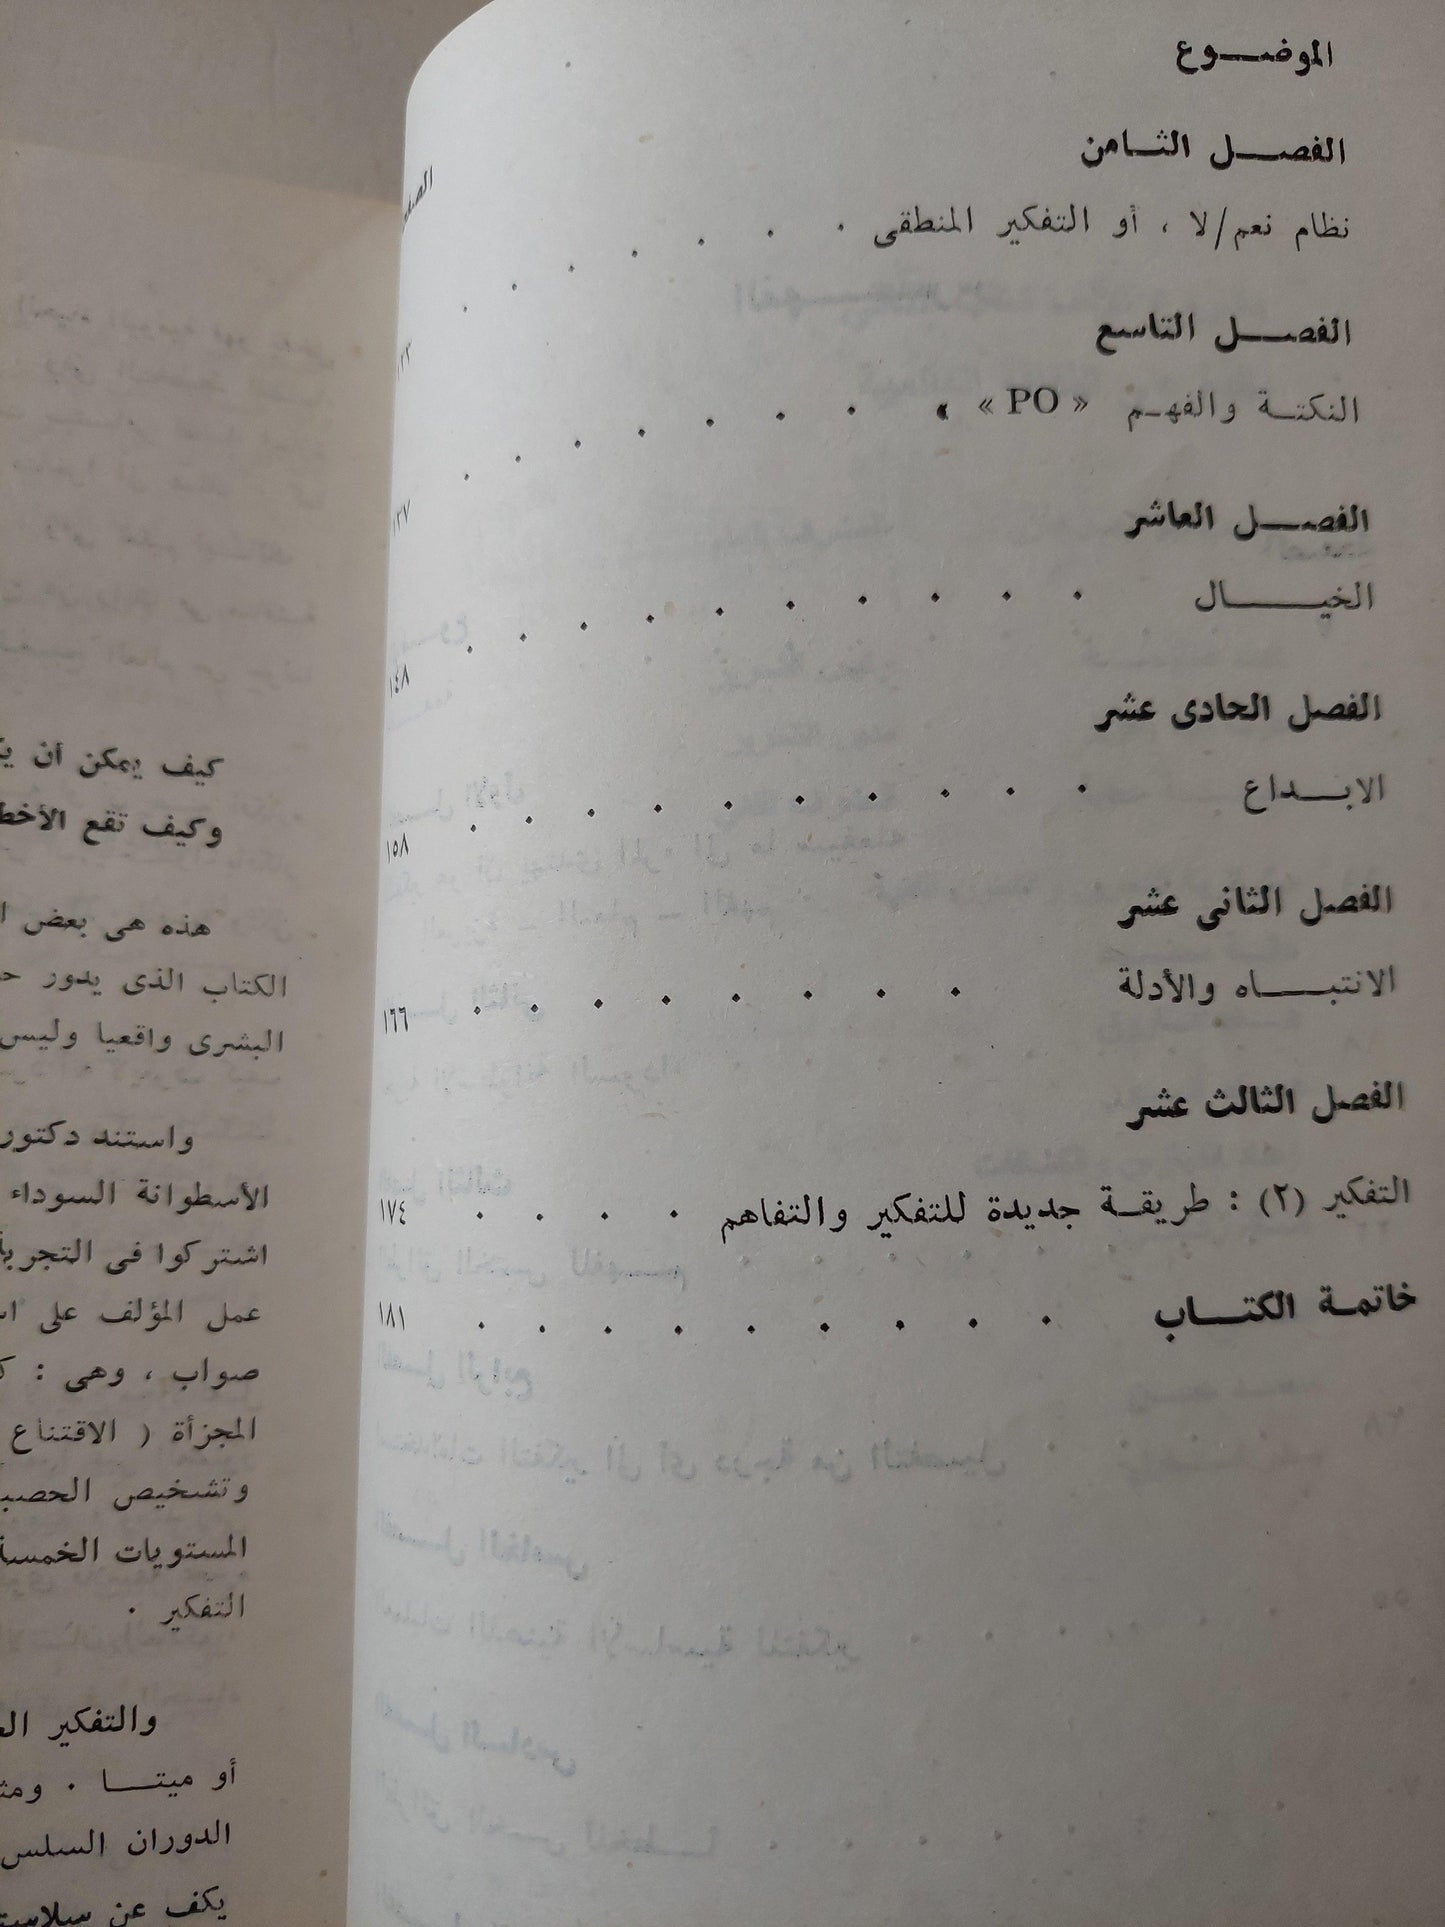 الموضــوع
الفصــل الثــامن
نظام نعم/لا ، أو التفكير المنطقى . . . . . . .
الفصــل التاسع
النكتــة والفهـم « PO » . . . . . . . ١٢٧
الفصــل العاشر
الخيــــال . . . . . . . . . . ١٤٨
الفصل الحادى عشر
الابــداع . . . . . . . . . . ١٥٨
الفصل الثانى عشر
الانتبــــاه والأدلة . . . . . . . . ١٦٦
الفصل الثالث عشر
التفكير (٢) : طريقــة جديدة للتفكير والتفاهم . . . . ١٧٤
خاتمــة الكتــــاب . . . . . . . . . ١٨١
كيف يمكن أن
وكيف تقع
هذه هى بعض
الكتاب الذى يدور
البشرى واقعيا وليس
واستند دكتور
الأسطوانة السوداء
اشتركوا فى
عمل المؤلف على
صواب ، وهى :
المجزأة ( الاقتناع
وتشخيص
المستويات الخمسة
التفكير .
والتفكير
أو ميتــــا .
الدوران السلس
يكف عن